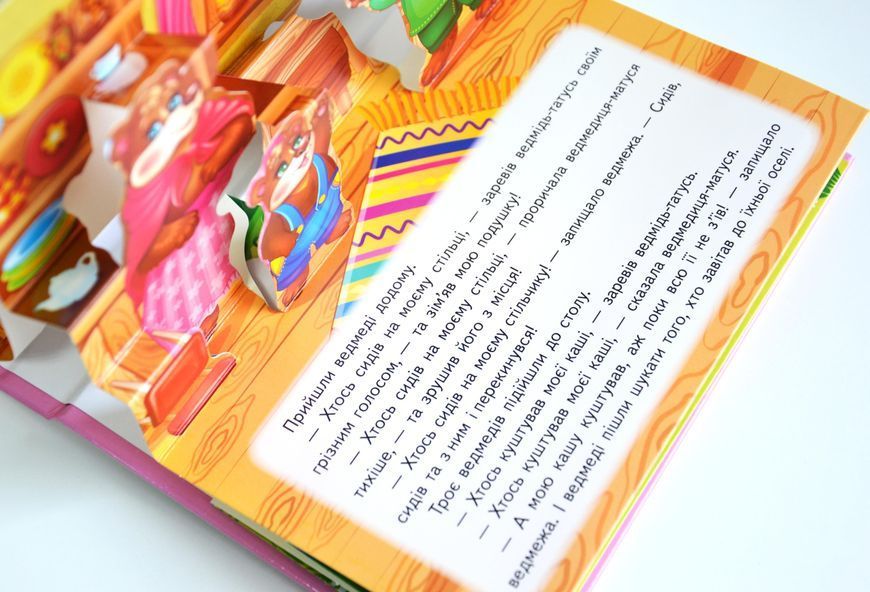 Прийшли ведмеді додому.
— Хтось сидів на моєму стільці, — заревів ведмідь-татусь своїм
грізним голосом, — та зім'яв мою подушку!
— Хтось сидів на моєму стільці, — проричала ведмедиця-матуся
тихіше, — та зрушив його з місця!
— Хтось сидів на моєму стільчику! — запищало ведмежа. — Сидів,
сидів та з ним і перекинувся!
Троє ведмедів підійшли до столу.
— Хтось куштував моєї каші, — заревів ведмідь-татусь.
— Хтось куштував моєї каші, — сказала ведмедиця-матуся.
— А мою кашу куштував, аж поки всю її не з'їв! — запищало
ведмежа. І ведмеді пішли шукати того, хто завітав до їхньої оселі.